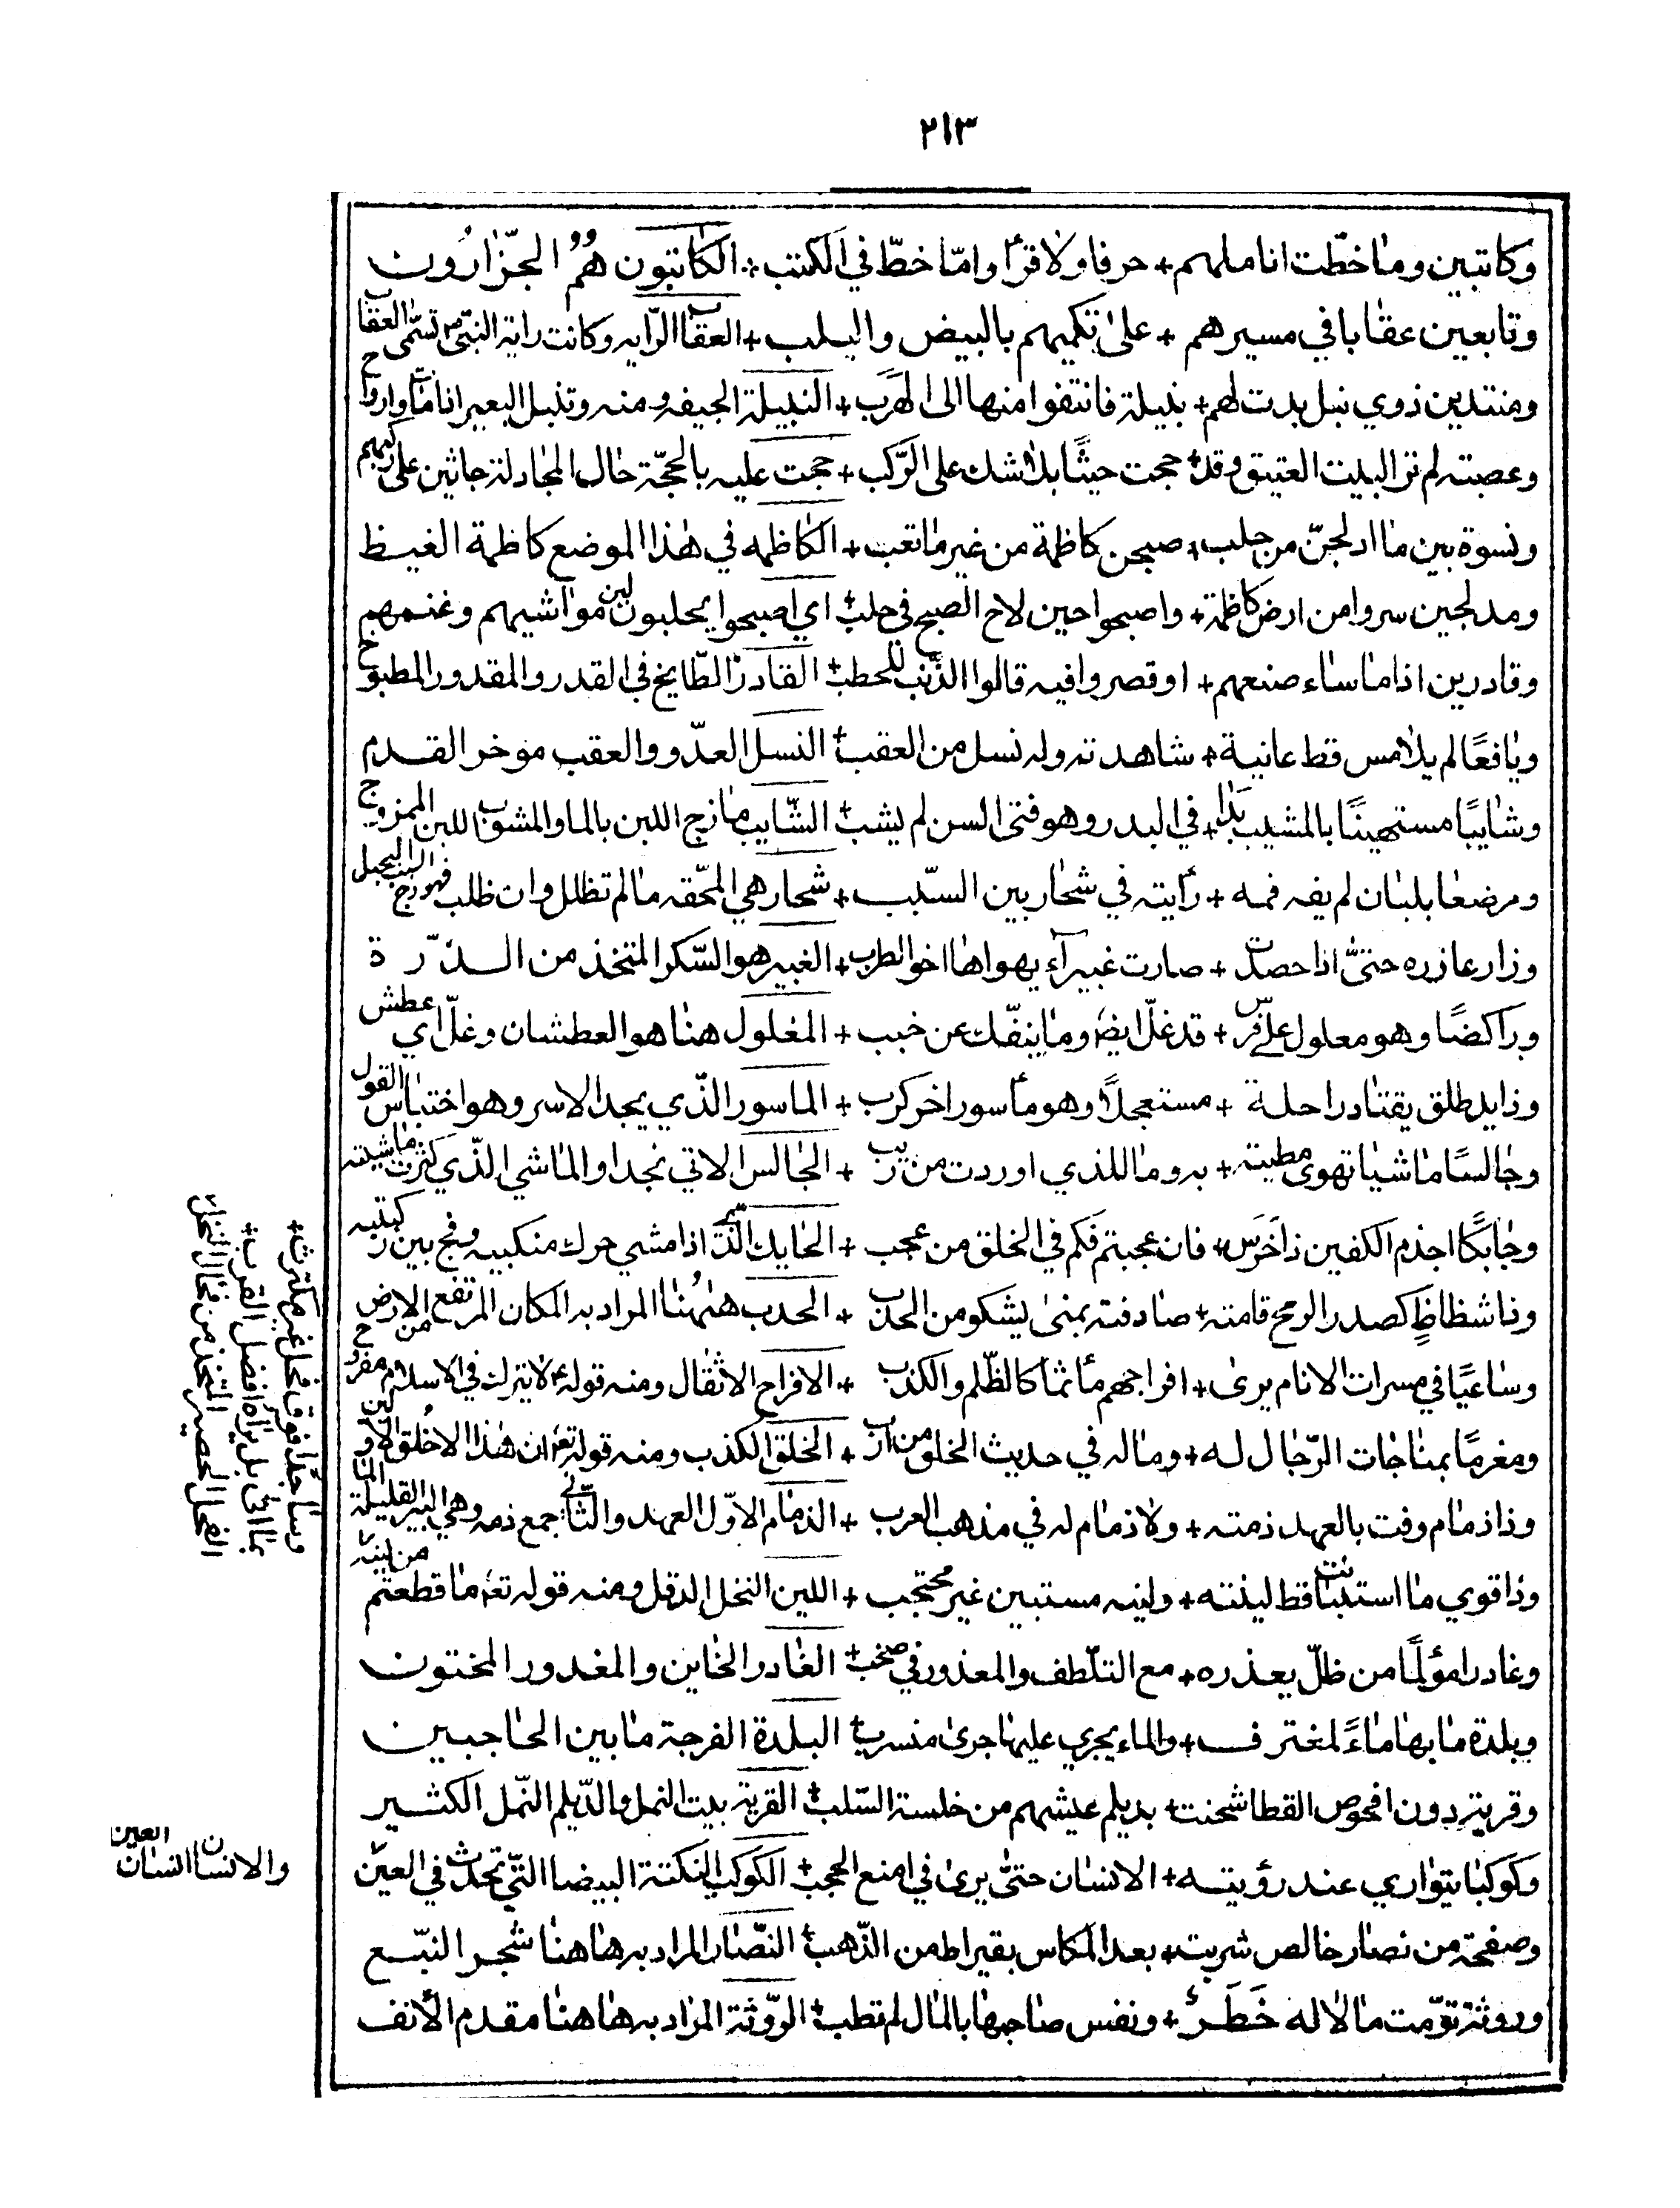 ٢١٣
وكاتبين وما خطّت اناملهم + حرفا ولا قرأوا ما خطّ في الكتب + الكاتبون هُمُ الجزّارون
وتابعين عقابا في مسيرهم + على تكميهم بالبيض واليلب + العقاب الرّايه وكانت راية النبي تسمّى العقاب
ومنتدين ذوي نبل بدت لهم + نبيلة فانتفوا منها الى الهَرَب + النبيلة الجيفه ومنه وتنبل البعير اذا مات واروح
وعصبته لم تر البيت العتيق وقد + حجت حيثًا بلا شك على الرّكب + حجت عليه بالحجّة حال المجادلة جاثين على ركبهم
ونسوة بين ما ادلجن من حلب + صبحن كاظمة من غير ما تعب + الكاظمه في هذا الموضع كاظمة الغيظ
ومدلجين سروا من ارض كاظمة + واصبحوا حين لاح الصبح في حلب + اي اصبحوا يحلبون لبن مواشيهم وغنمهم
وقادرين اذا ما ساء صنعهم + اوقصروا فيه قالوا الذّنب للحطب + القادر الطّابخ في القدر والمقدور المطبوخ
ويافعًا لم يلامس قط غانية + شاهدته وله نسل من العقب + النسل العدّو والعقب موخر القدم
وشايبًا مستهينًا بالمشيب بدا + في البدر وهو فتى السن لم يشب + الشّايب مازج اللبن بالما والمشوب اللبن الممزوج
ومرضعا بلبان لم يفه فمه + رأيته في شجار بين السّبب + شجار هي المحّقه ما لم تظلل وان ظلب فهو دج السبب الحبل
وزارعا ذره حتّى اذا حصدت + صارت غبيرآء يهواها اخوا لطرب + الغبير هو السّكر المتخذ من الذّرة
وراكضًا وهو مغلول على فرس + قد غلّ ايضا وما ينفّك عن خبب + المغلول هنا هو العطشان وغلّ اي عطش
وذا يد طلق يقتاد راحلة + مستعجلًا وهو مأسور اخو كرب + الماسور الذّي يجد الاسر وهو احتباس القول
وجالسًا ماشيا تهوى مطيته + به وما اللذي اوردت من ريب + الجالس الاتي نجدا والماشي الذّي كثرت ماشيته
وجابكًا اجذم الكفين ذا خَرَس + فان عجبتم فكم في الخلق من عجب + الحايك الذّي اذا مشى حرك منكبيه وفج بين ركبتيه
وذا شظاظٍ كصدر الرمح قامته + صادفته بمنى يشكو من الحدب + الحدب ههُنا المراد به المكان المرتفع من الارض
وساعيًا في مسرات الانام يرى + افراحهم مأثما كالظّلم والكذب + الافراح الاثقال ومنه قوله لا يترك في الاسلام مفروح
ومغرمًا بمناجات الرّجال له + وماله في حديث الخلق من ارب + الخلق الكذب ومنه قوله تع ان هذا الا خُلق الاولين
وذا ذمام وفت بالعهد ذمته + ولا ذمام له في مذهب العرب + الذمام الاوّل العهد والثّاني جمع ذمه وهي البير القليلة الما
وذا قوي ما استبانت قط لينته + ولينه مستبين غير محتجب + اللين النخل الدقل ومنه قوله تع ما قطعتم من لينة
وغادرا مؤلمًا من ظلّ يعذره + مع التلّطف والمعذور في صخب + الغادر الخاين والمغدور المختون
وبلدة ما بها ماءً لمغترف + والماء يجري عليها جرى منسرب + البلدة الفرجة ما بين الحاجبين
وقرية دون افحوص القطا شحنت + بديلم عيشهم من خلسة السّلب + القرية بيت النمل والدّيلم النّمل الكثير
وكوكبا يتواري عند رؤيته + الانسان حتّى يرى في امنع الحجب + الكوكب النكتة البيضا التّي تحدث في العين
والانسان انسان العين
وصفحة من نضار خالص شريت + بعد المكاس بقيراط من الذّهب + النّضار المراد به هاهنا شجر النبّع
وروثة توّمت مالا له خَطَرٌ + ونفس صاحبها بالمال لم تطب + الروّثة المراد به هاهنا مقدم الأنف
وساجدًا فوق فحل غير مكترث +
بما اتى بل يراه افضل القرب +
الفحل الحصير المتخذ من فحال النخل